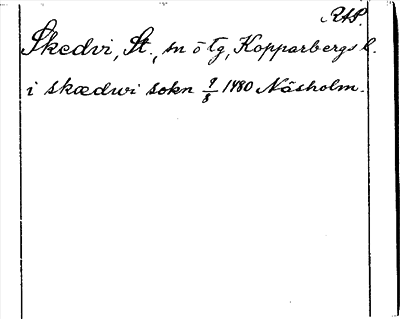 RAP.
Skedvi, St., sn ö Tg, Kopparbergs l.
i skædwi sokn 9/8 1480 Näsholm.